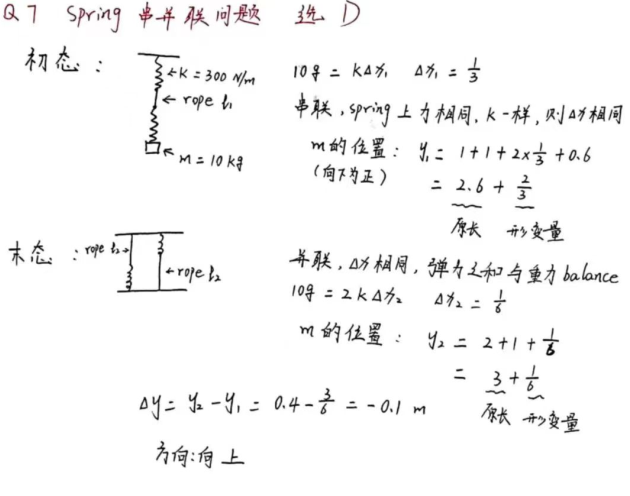 Q7 Spring 串并联问题 选 D
初态：
K = 300 N/m
rope l₁
m = 10 kg
10g = KΔx₁ Δx₁ = 1/3
串联，spring 上力相同，K一样，则Δx相同
m的位置： y₁ = 1 + 1 + 2×1/3 + 0.6
(向下为正)
= 2.6 + 2/3
原长 形变量
末态：
rope l₂
rope l₂
并联，Δx相同，弹力之和与重力 balance
10g = 2KΔx₂ Δx₂ = 1/6
m的位置： y₂ = 2 + 1 + 1/6
= 3 + 1/6
原长 形变量
Δy = y₂ - y₁ = 0.4 - 3/6 = -0.1 m
方向：向上